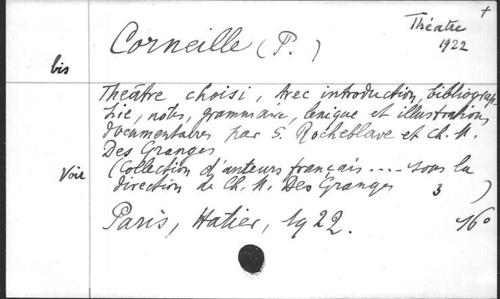 Corneille (P.)
Théatre +
1922
bis
Theâtre choisi, Avec introduction, bibliograp-
hie, notes, grammaire, lexique et illustrations
documentaires par S. Rocheblave et Ch. M.
Des Granges
Voir
(Collection d'auteurs français .... sous la
direction de Ch. M. Des Granges 3 )
Paris, Hatier, 1922. 16°